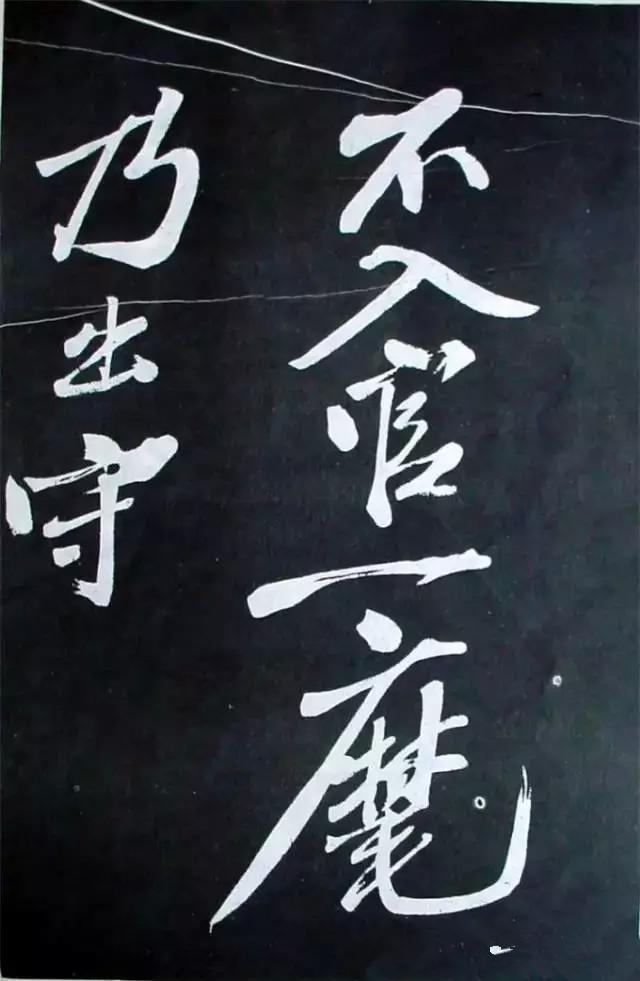 不入官一麾
乃出守